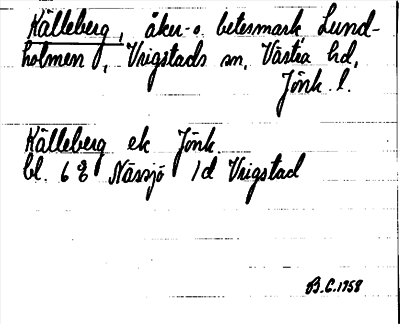 Källeberg, åker- o. betesmark, Lund-
holmen, Vrigstads sn, Västra hd,
Jönk. l.
Källeberg ek Jönk.
bl. 6 E Nässjö 1d Vrigstad
B.C. 1958